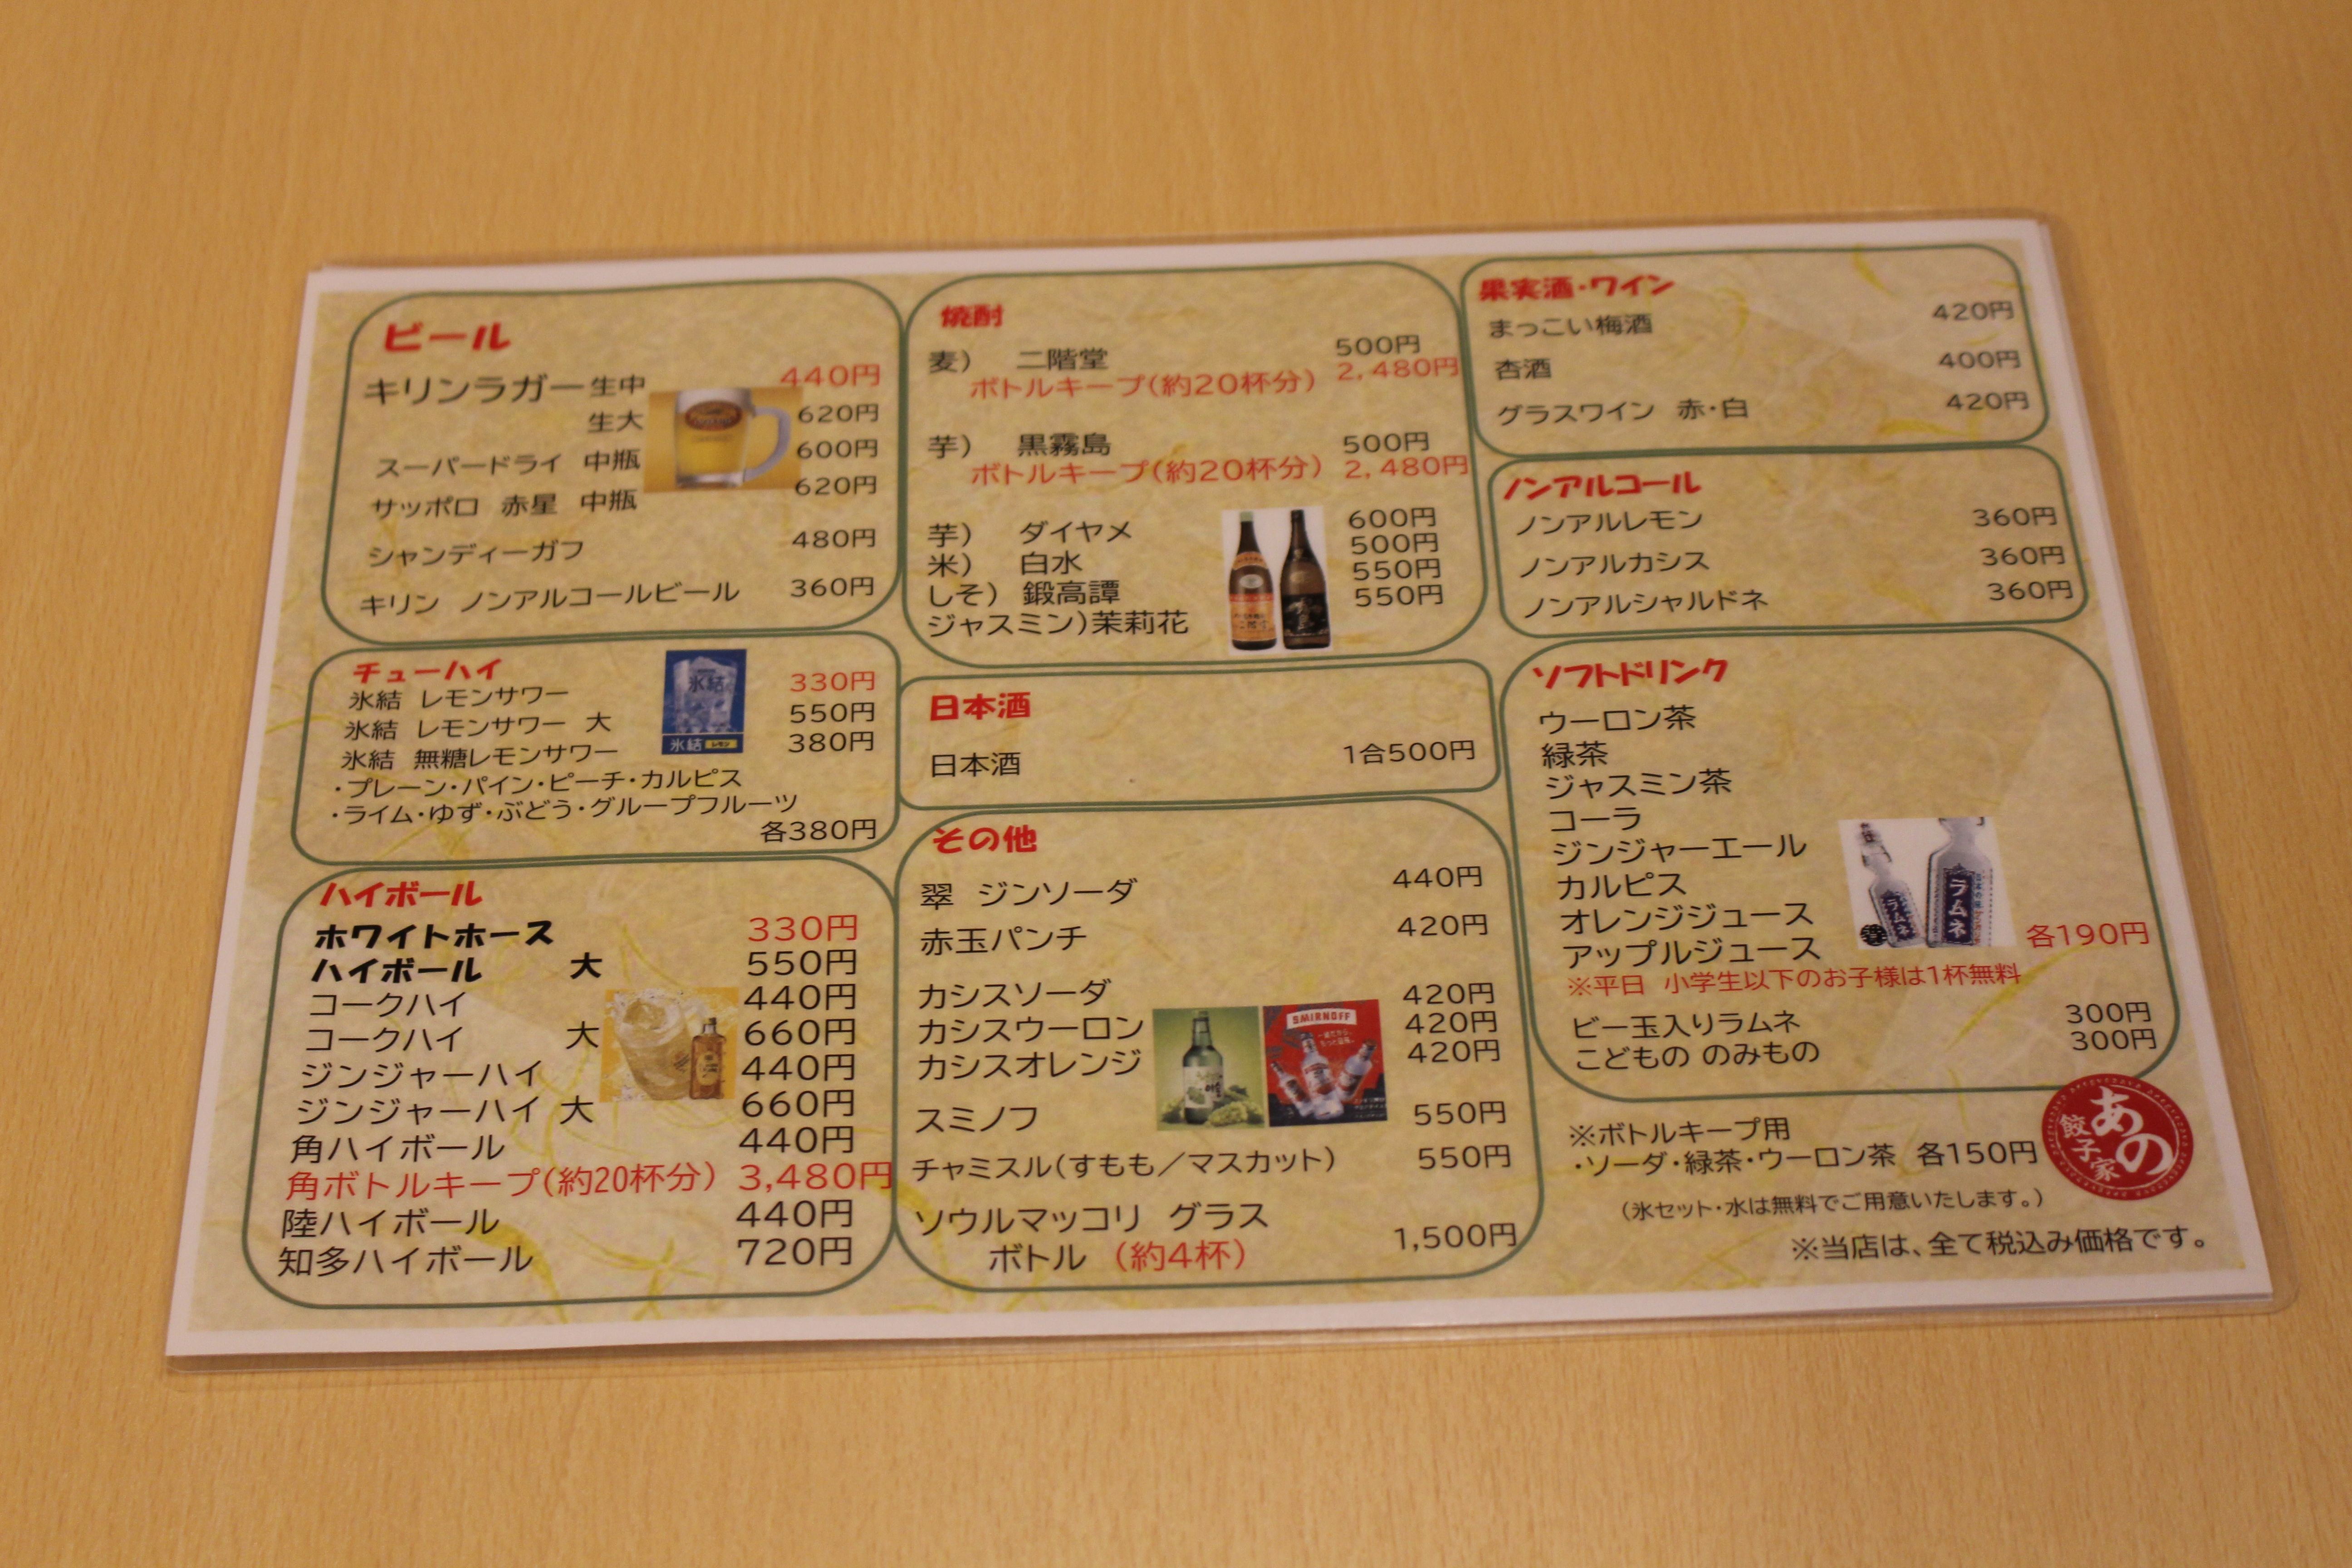 ビール
キリンラガー 生中 440円
生大 620円
スーパードライ 中瓶 600円
サッポロ 赤星 中瓶 620円
シャンディーガフ 480円
キリン ノンアルコールビール 360円
チューハイ
氷結 レモンサワー 330円
氷結 レモンサワー 大 550円
氷結 無糖レモンサワー 380円
・プレーン・パイン・ピーチ・カルピス
・ライム・ゆず・ぶどう・グループフルーツ
各380円
氷結
氷結 レモン
ハイボール
ホワイトホース 330円
ハイボール 大 550円
コークハイ 440円
コークハイ 大 660円
ジンジャーハイ 440円
ジンジャーハイ 大 660円
角ハイボール 440円
角ボトルキープ(約20杯分) 3,480円
陸ハイボール 440円
知多ハイボール 720円
焼酎
麦) 二階堂 500円
ボトルキープ(約20杯分) 2,480円
芋) 黒霧島 500円
ボトルキープ(約20杯分) 2,480円
芋) ダイヤメ 600円
米) 白水 500円
しそ) 鍛高譚 550円
ジャスミン)茉莉花 550円
日本酒
日本酒 1合500円
その他
翠 ジンソーダ 440円
赤玉パンチ 420円
カシスソーダ 420円
カシスウーロン 420円
カシスオレンジ 420円
SMIRNOFF
スミノフ 550円
チャミスル(すもも/マスカット) 550円
ソウルマッコリ グラス
ボトル (約4杯) 1,500円
果実酒・ワイン
まっこい梅酒 420円
杏酒 400円
グラスワイン 赤・白 420円
ノンアルコール
ノンアルレモン 360円
ノンアルカシス 360円
ノンアルシャルドネ 360円
ソフトドリンク
ウーロン茶
緑茶
ジャスミン茶
コーラ
ジンジャーエール
カルピス
オレンジジュース
アップルジュース 各190円
ラムネ
ラムネ
※平日 小学生以下のお子様は1杯無料
ビー玉入りラムネ 300円
こどもの のみもの 300円
※ボトルキープ用
・ソーダ・緑茶・ウーロン茶 各150円
(氷セット・水は無料でご用意いたします。)
※当店は、全て税込み価格です。
餃子家
あの